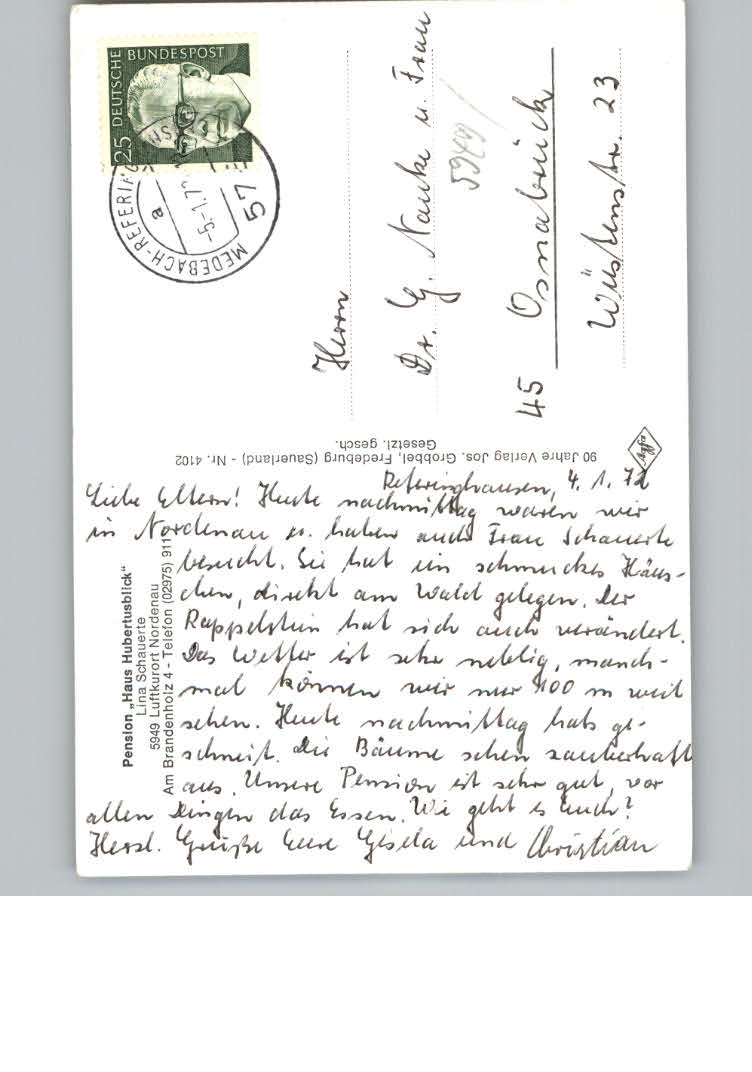 DEUTSCHE BUNDESPOST
25
MEDEBACH-REFERING
a
-5.-1.7
57
Herrn
Dr. G. Nauke u. Frau
5949/
45 Osnabrück
Wüstenstr. 23
90 Jahre Verlag Jos. Grobbel, Fredeburg (Sauerland) - Nr. 4102
Gesetzl. gesch.
Pension „Haus Hubertusblick“
Lina Schauerte
5949 Luftkurort Nordenau
Am Brandenholz 4 - Telefon (02975) 911
Referinghausen, 4. 1. 72
Liebe Eltern! Heute nachmittag waren wir
in Nordenau u. haben auch Frau Schauerte
besucht. Sie hat ein schmuckes Häus-
chen, direkt am Wald gelegen. Der
Rappelstein hat sich auch verändert.
Das Wetter ist sehr neblig, manch-
mal können wir nur 100 m weit
sehen. Heute nachmittag hats ge-
schneit. Die Bäume sehen zauberhaft
aus. Unsere Pension ist sehr gut, vor
allen Dingen das Essen. Wie geht es Euch?
Herzl. Grüße Eure Gisela und Christian